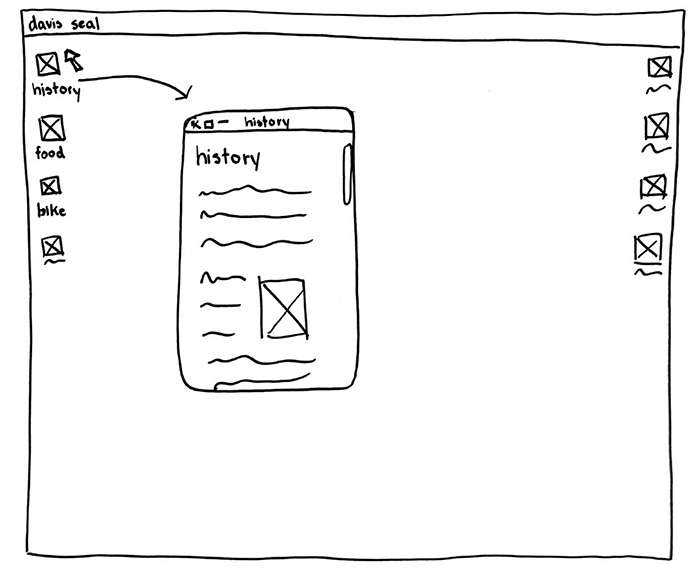 davis seal
history
food
bike
history
history